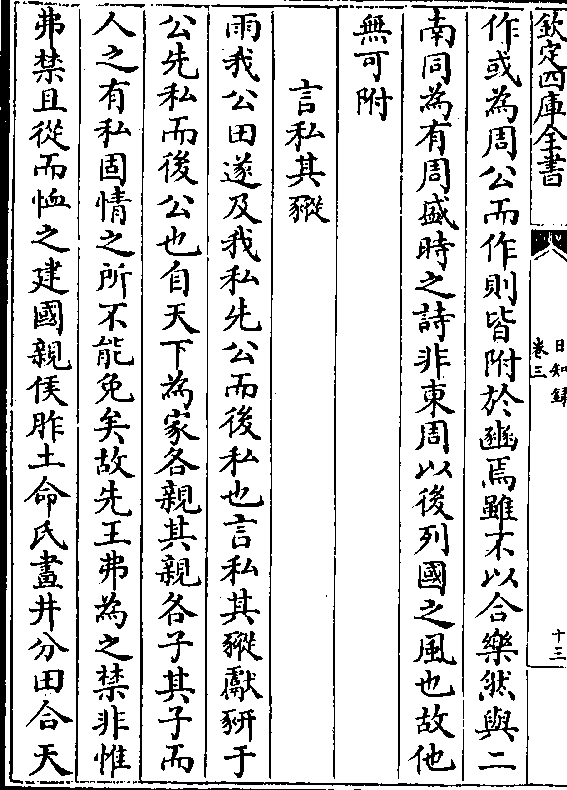 欽定四庫全書
日知録
卷三
十三
作或為周公而作則皆附於豳焉雖不以合樂然與二
南同為有周盛時之詩非東周以後列國之風也故他
無可附
言私其豵
雨我公田遂及我私先公而後私也言私其豵獻豜于
公先私而後公也自天下為家各親其親各子其子而
人之有私固情之所不能免矣故先王弗為之禁非惟
弗禁且從而恤之建國親侯胙土命氏畫井分田合天